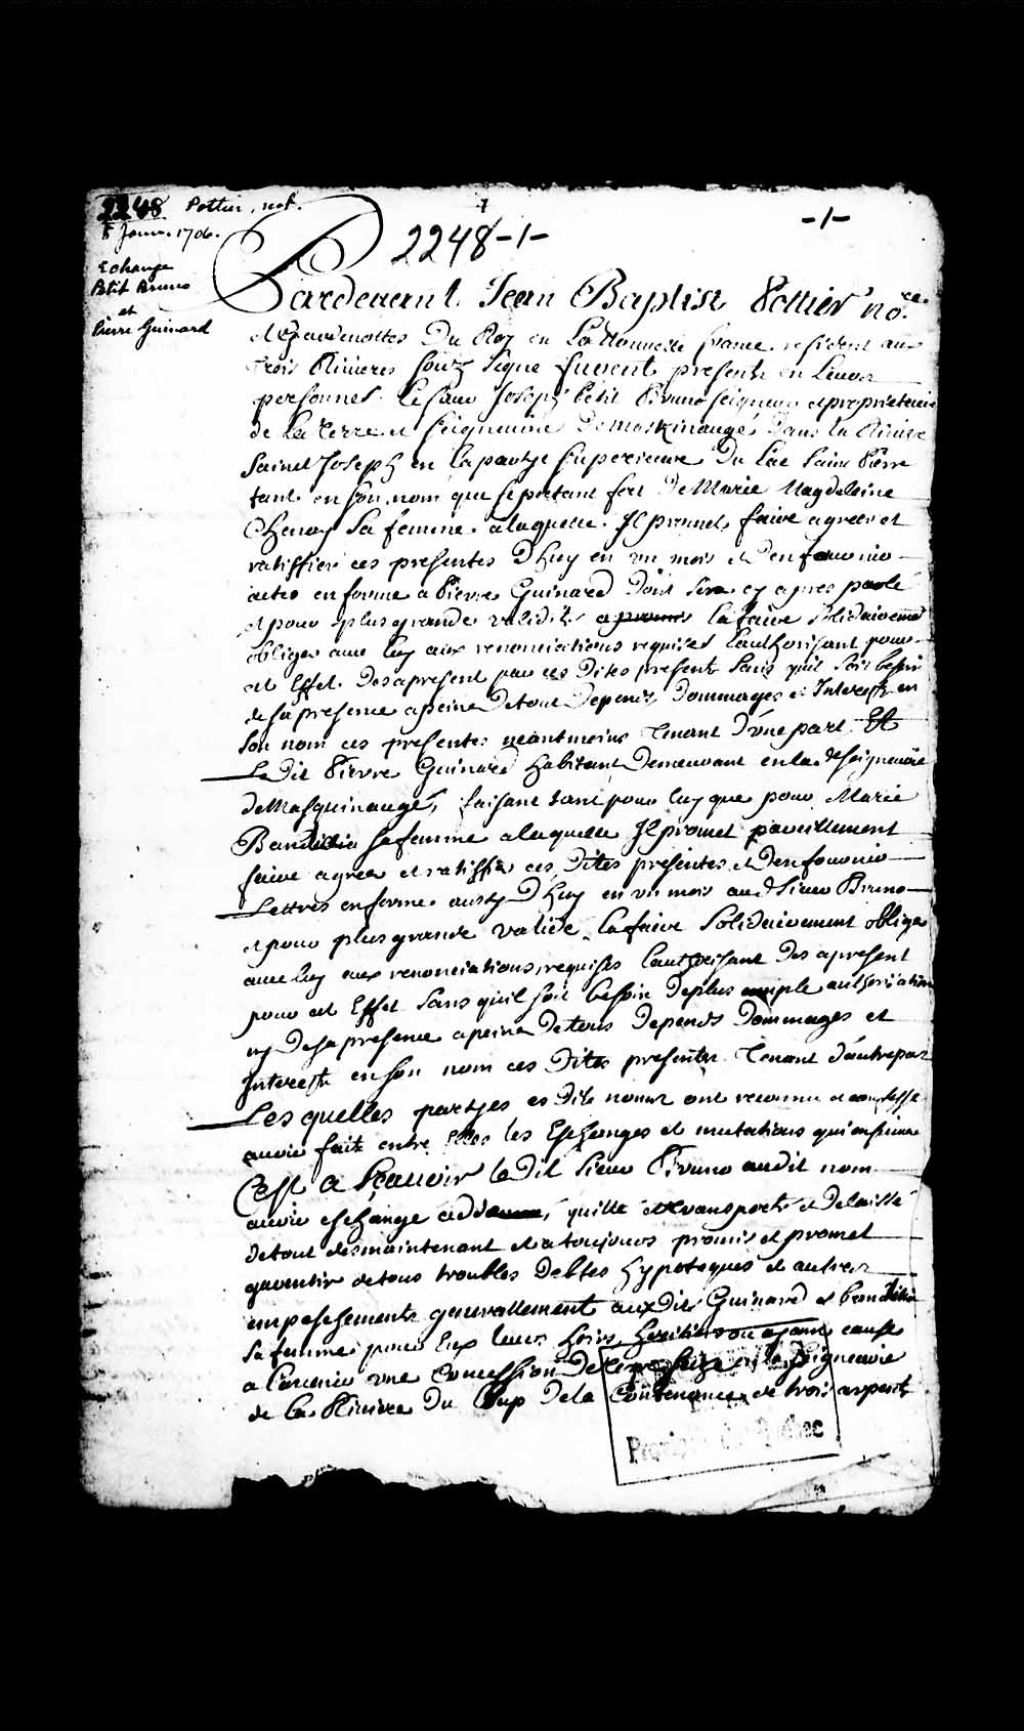 2248 Pottier, not.
8 Janv. 1706.
Echange
Petit Bruno
et
Pierre Guinard
2248-1-
-1-
Pardevant Jean Baptiste Pottier no.re
et gardenottes Du Roy en La Nouvelle france resident aux
trois Rivieres souz signe furent presents en Leurs
personnes Le sieur Joseph Petit Bruno seigneur et proprietaire
de La terre et seigneurie De maskinaugé Dans la Riviere
Saint Joseph en la partye superieure Du Lac Saint Pierre
tant en son nom que se portant fort De Marie Magdeleine
Chenay sa femme a laquelle Il promet faire agreer et
ratiffier ces presentes D huy en un mois et D en fournir
actes en forme a Pierre Guinard Dont sera cy apres parlé
et pour plus grande validité la faire solidairement
obliger avec luy aux renonciations requises Lauthorisant pour
cet Effet Des apresent par ces Dites presents sans quil soit besoin
de sa presence a peine De tout Depends Dommages et Interests en
son nom ces presentes neantmoins Tenant D'une part Et
Le Dit Pierre Guinard habitant Demeurant en lad seigneurie
de Masquinaugé, faisant tant pour luy que pour Marie
sa femme a laquelle Il promet pareillement
faire agreer et ratiffier ces Dites presentes et Den fournir
Lettres en forme aussy D huy en un mois aud sieur Bruno
et pour plus grande validé la faire solidairement obliger
avec luy aux renonciations requises Lauthorisant Des apresent
pour cet Effet sans quil soit besoin De plus ample authorisation
ny De sa presence a peine De tous Depends Dommages et
Interests en son nom ces Dites presentes Tenant d'autre part
Les quelles partyes es Dits noms ont reconnu et confessé
avoir fait entre Elles les Eschanges et mutations qui ensuivent
C'est a Scavoir Le Dit Sieur Bruno audit nom
avoir eschangé ceddé, quitté et transporté et Delaissé
de tout des maintenant et a toujours promis et promet
garentir de tous troubles Debtes hypoteques et autres
empeschements generallement aux Dits Guinard et
sa femme pour Eux leurs hoirs ayans cause
a Lavenir une Concession De terre size en la seigneurie
de la Riviere Du Loup De la Contenance de trois arpents
Province de Québec